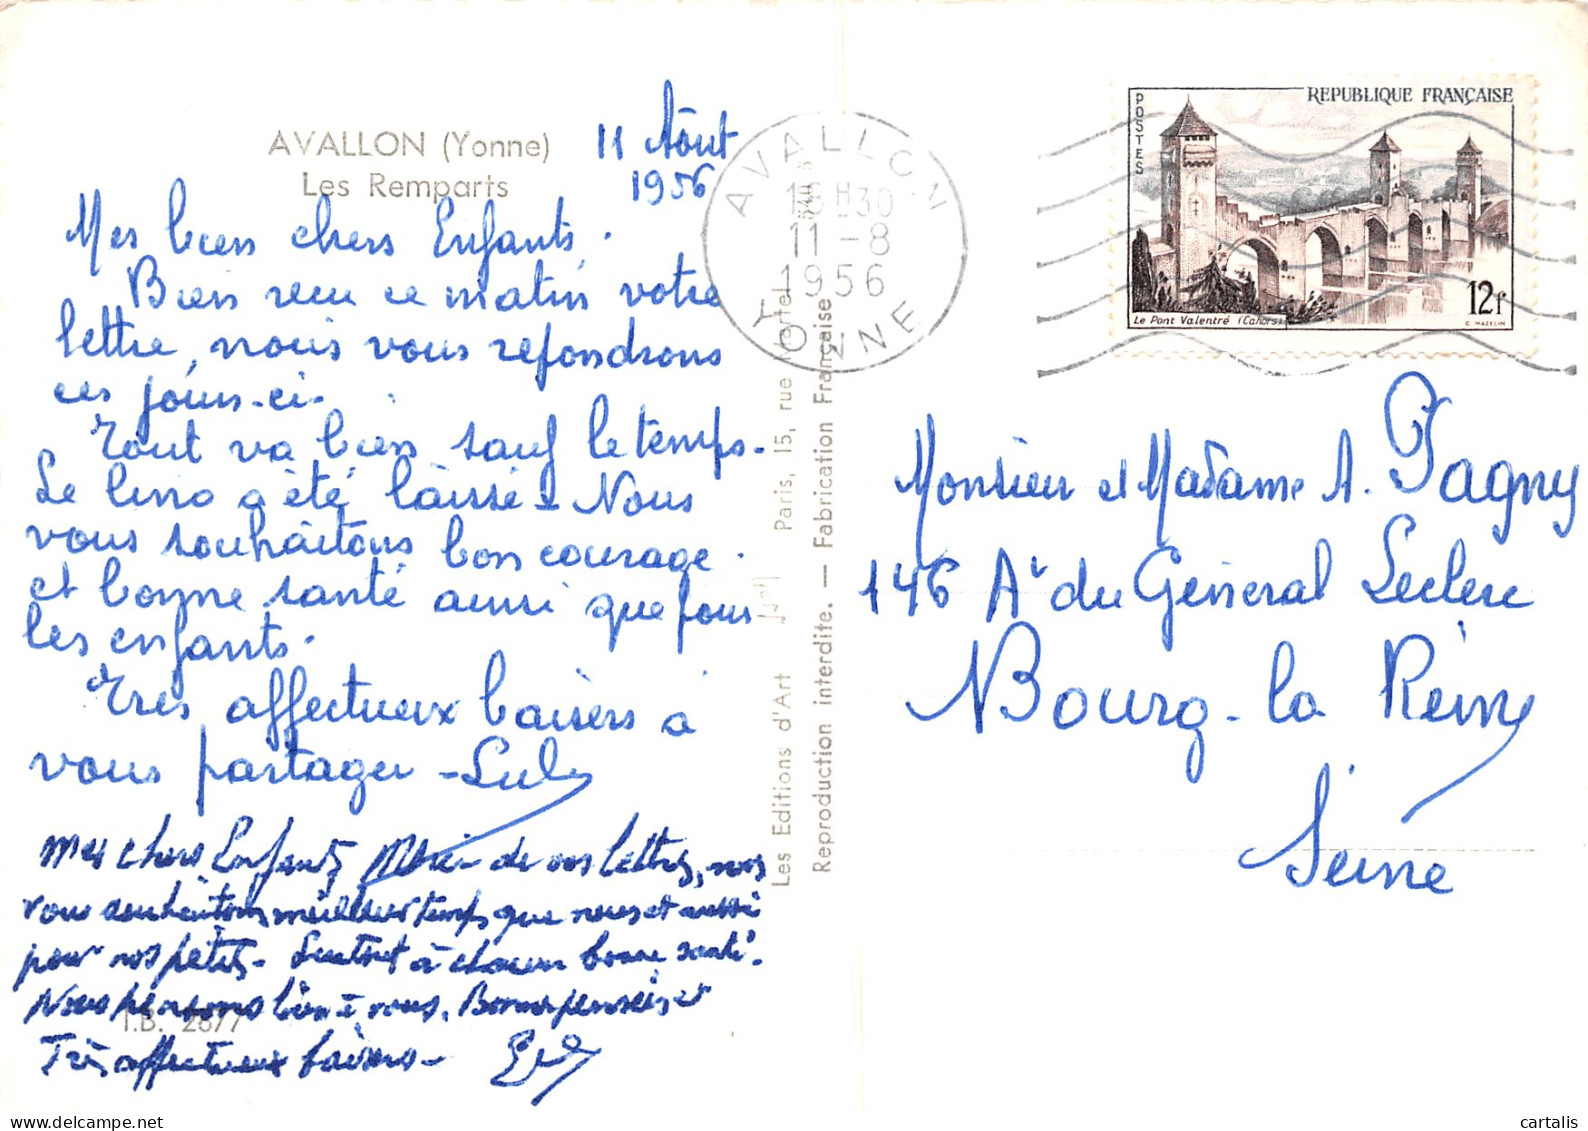 AVALLON (Yonne)
Les Remparts
11 Août
1956
Mes bien chers Enfants.
Bien recu ce matin votre
lettre, nous vous repondrons
ces jours-ci-
Tout va bien sauf le temps-
Le lino a été laissé - Nous
vous souhaitons bon courage.
et bonne santé ainsi que pour
les enfants-
Très affectueux baisers à
vous partager -
Mes chers Enfants, Merci - de vos lettres, nous
vous souhaitons meilleur temps que nous et aussi
pour nos petits - Surtout à chacun bonne santé.
Nous pensons bien à vous. Bonnes pensées et
Très affectueux baisers -
I.B. 2677
Les Editions d'Art Paris, 15, rue Martel
Reproduction interdite. — Fabrication Française
AVALLON
18H30
11-8
1956
YONNE
POSTES
REPUBLIQUE FRANÇAISE
Le Pont Valentré (Cahors)
12f
C. MAZELIN
Monsieur et Madame A. Pagny
146 Ar du Général Leclerc
Bourg-la Reine
Seine
cartalis